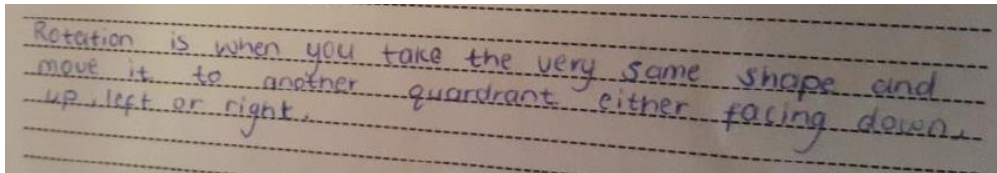 Rotation is when you take the very same shape and
move it to another quardrant either facing down,
up, left or right.